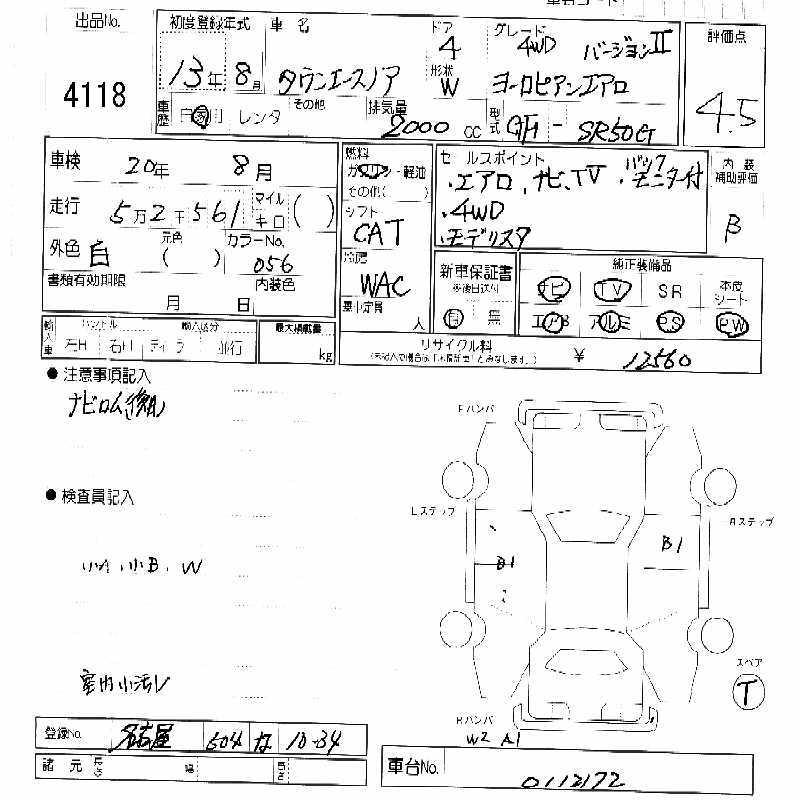 出品No. 4118
初度登録年式 13年 8月
車名 タウンエースノア
ドア 4
形状 W
グレード 4WD バージョンⅡ
ヨーロピアンエアロ
評価点 4.5
車歴 自家用 レンタ その他
排気量 2000cc
型式 GH - SR50G
車検 20年 8月
走行 5万2千561 マイル キロ ( )
外色 白 元色 ( ) カラーNo. 056
内装色
書類有効期限 月 日
燃料 ガソリン・軽油
その他( )
シフト CAT
冷房 WAC
乗車定員 人
セールスポイント
・エアロ、ナビ、TV ・バックモニター付
・4WD
・モデリスタ
内装補助評価 B
新車保証書
有 無
純正装備品
ナビ TV SR 本皮シート
エアB アルミ PS PW
輸入車 ハンドル 輸入区分
左H 右H ディーラ 並行
最大積載量 kg
リサイクル料 ¥ 12560
●注意事項記入
●検査員記入
小A、小B、W
室内小汚レ
Fバンパ
Lステップ
Rステップ
B1
B1
スペア
T
Rバンパ
W2 A1
登録No. 名古屋 504 な 10-34
諸元 長さ 幅 高さ
車台No. 0112172